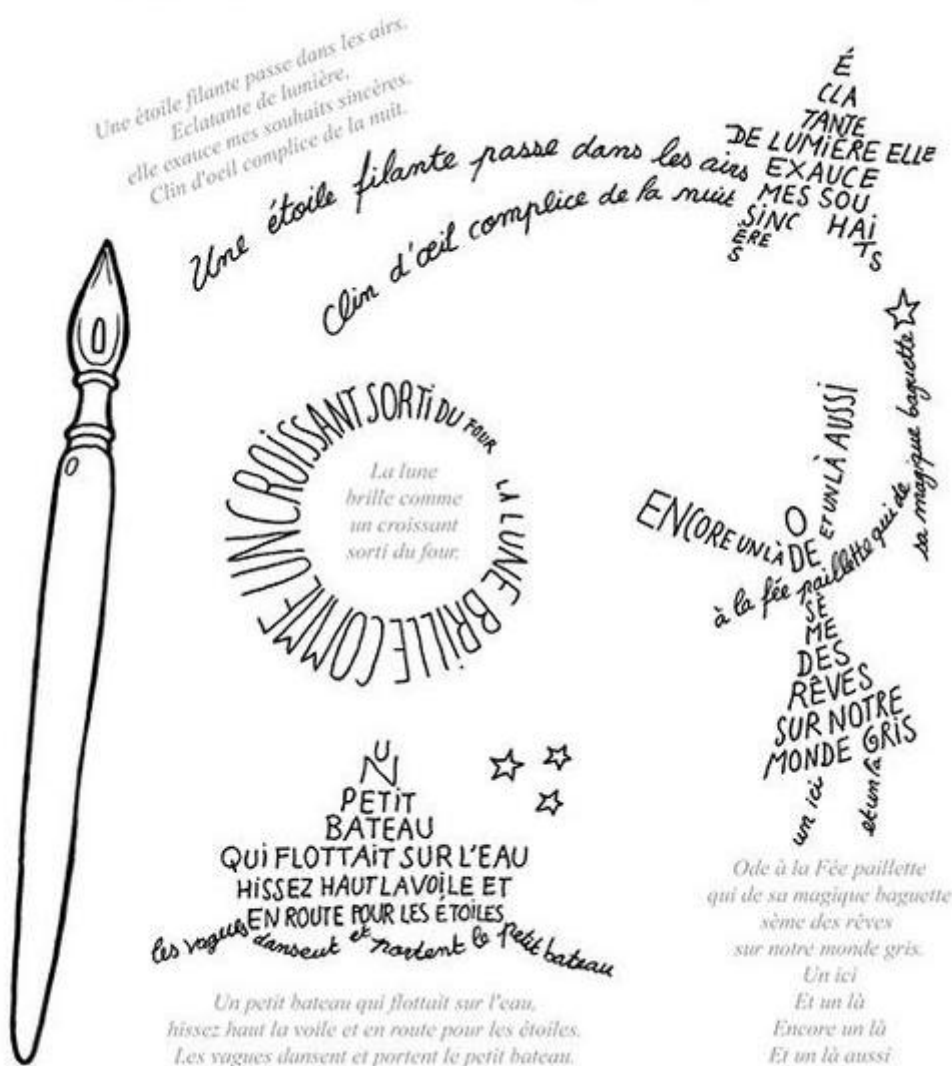 Une étoile filante passe dans les airs.
Eclatante de lumière,
elle exauce mes souhaits sincères.
Clin d'oeil complice de la nuit.
Une étoile filante passe dans les airs
É
CLA
TANTE
DE LUMIÈRE ELLE
EXAUCE
MES SOU
SINC HAI
ÈRE TS
S
Clin d'œil complice de la nuit
LA LUNE BRILLE COMME UN CROISSANT SORTI DU FOUR
La lune
brille comme
un croissant
sorti du four.
O
DE
à la fée paillette qui de
sa magique baguette
SÈ
ME
DES
RÊVES
SUR NOTRE
MONDE GRIS
un ici
et un là
ENCORE UN LÀ
ET UN LÀ AUSSI
UN
PETIT
BATEAU
QUI FLOTTAIT SUR L'EAU
HISSEZ HAUT LA VOILE ET
EN ROUTE POUR LES ÉTOILES
les vagues dansent et portent le petit bateau
Un petit bateau qui flottait sur l'eau,
hissez haut la voile et en route pour les étoiles.
Les vagues dansent et portent le petit bateau.
Ode à la Fée paillette
qui de sa magique baguette
sème des rêves
sur notre monde gris.
Un ici
Et un là
Encore un là
Et un là aussi